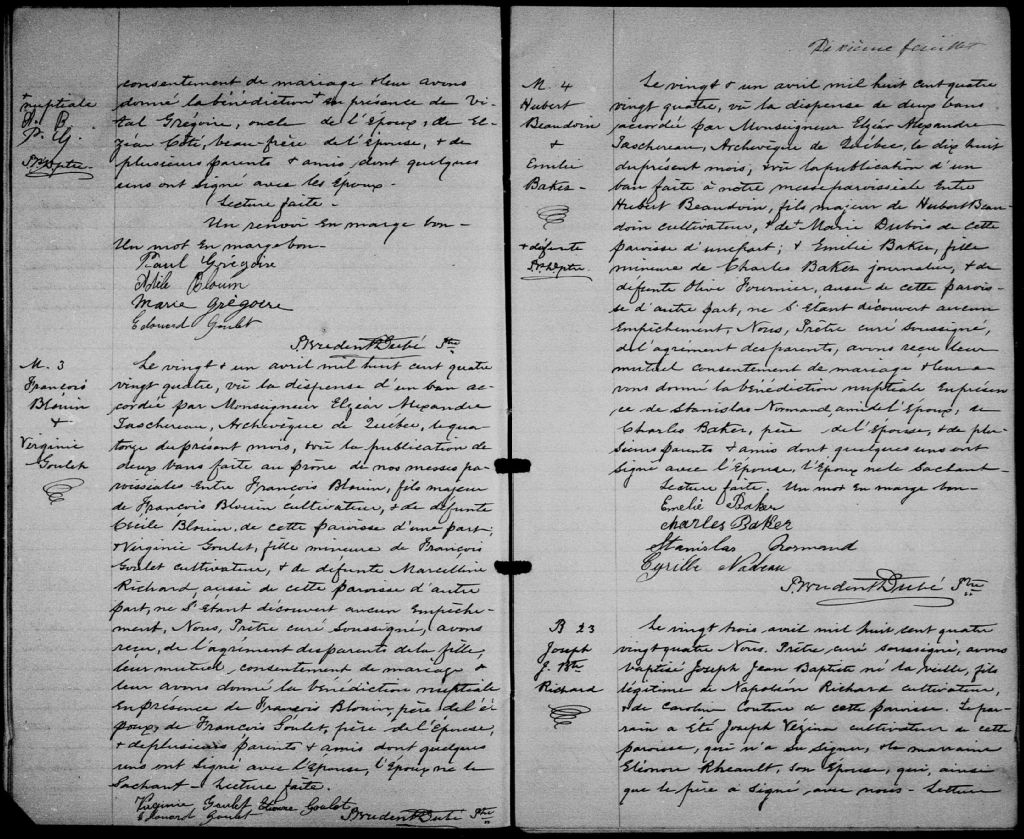 consentement de mariage & leur avons
donné la bénédiction + en présence de Vi-
tal Grégoire, oncle de l'Epoux, de El-
zéar Côté, beau-frère de l'épouse, & de
plusieurs parents & amis dont quelques
uns ont signé avec les Epoux.
Lecture faite.
Un renvoi en marge bon.
Un mot en marge bon.
Paul Grégoire
Adèle Blouin
Marie Grégoire
Edouard Goulet
P. Prudent Dubé Ptre
+ nuptiale
A. B.
P. Ptre
M. 3
François
Blouin
&
Virginie
Goulet
Le vingt & un avril mil huit cent quatre
vingt quatre, vû la dispense d'un ban ac-
cordée par Monseigneur Elzéar Alexandre
Taschereau, Archevêque de Québec, le qua-
torze du présent mois, & vû la publication de
deux bans faite au prône de nos messes pa-
roissiales entre François Blouin, fils majeur
de François Blouin cultivateur, & de défunte
Cécile Blouin, de cette paroisse d'une part;
& Virginie Goulet, fille mineure de François
Goulet cultivateur, & de défunte Marcelline
Richard, aussi de cette paroisse d'autre
part, ne s'étant découvert aucun Empêche-
ment, Nous, Prêtre curé soussigné, avons
reçu, de l'agrément des parents de la fille,
leur mutuel consentement de mariage &
leur avons donné la bénédiction nuptiale
en présence de François Blouin, père de l'é-
poux, de François Goulet, père de l'Epouse,
& de plusieurs parents & amis dont quelques
uns ont signé avec l'Epouse, l'Epoux ne le
sachant. Lecture faite.
Virginie Goulet Eléonre Goulet
Edouard Goulet P. Prudent Dubé Ptre
Dixième feuillet
M. 4
Hubert
Beaudoin
&
Emilie
Baker
+ défunte
Le vingt & un avril mil huit cent quatre
vingt quatre, vû la dispense de deux bans
accordée par Monseigneur Elzéar Alexandre
Taschereau, Archevêque de Québec, le dix huit
du présent mois, & vû la publication d'un
ban faite à notre messe paroissiale entre
Hubert Beaudoin, fils majeur de Hubert Beau-
doin cultivateur, & de + Marie Dubois de cette
paroisse d'une part; & Emilie Baker, fille
mineure de Charles Baker journalier, & de
défunte Olive Fournier, aussi de cette parois-
se d'autre part, ne s'étant découvert aucun
Empêchement, Nous, Prêtre curé soussigné,
de l'agrément des parents, avons reçu leur
mutuel consentement de mariage & leur a-
vons donné la bénédiction nuptiale en présen-
ce de Stanislas Normand, ami de l'Epoux, de
Charles Baker, père de l'Epouse, & de plu-
sieurs parents & amis dont quelques uns ont
signé avec l'Epouse, l'Epoux ne le sachant.
Lecture faite. Un mot en marge bon.
Emelie Baker
Charles Baker
Stanislas Normand
Cyrille Nadeau
P. Prudent Dubé Ptre
B 23
Joseph
J. Bte
Richard
Le vingt trois avril mil huit cent quatre
vingt quatre Nous, Prêtre curé soussigné, avons
baptisé Joseph Jean Baptiste né la veille, fils
légitime de Napoléon Richard cultivateur,
& de Caroline Couture de cette paroisse. Le par-
rain a été Joseph Vézina cultivateur de cette
paroisse, qui n'a su signer, & la marraine
Eléonore Rheault, son Epouse, qui, ainsi
que le père a signé, avec nous. Lecture